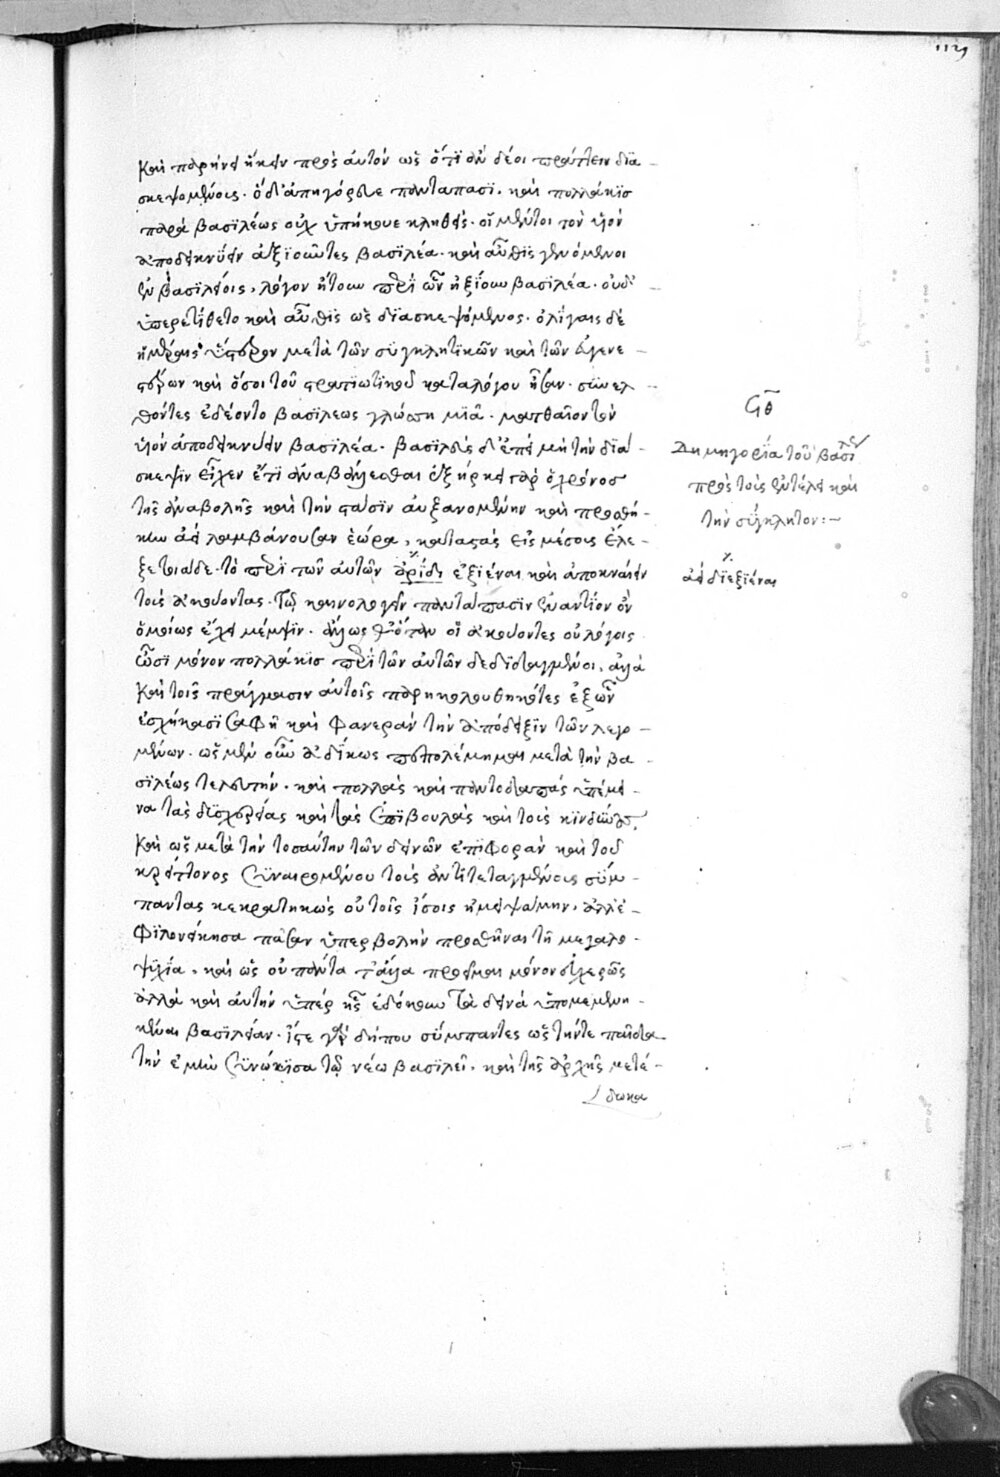 112
καὶ παρῄνει ἥκειν πρὸς αὐτὸν ὡς ὅτι ἂν δέοι πράττειν δια-
σκεψομένους. ὁ δ' ἀπηγόρευε πανταπασι. καὶ πολλάκις
παρὰ βασιλέως οὐχ ὑπήκουε κληθείς. οἱ μέντοι τὸν υἱὸν
ἀποδεικνύειν ἀξιοῦντες βασιλέα. καὶ αὖθις γενόμενοι
ἐν βασιλείοις, λόγον ᾔτουν περὶ ὧν ἠξίουν βασιλέα. ὁ δ'
ὑπερετίθετο καὶ αὖθις ὡς διασκεψόμενος. ὀλίγαις δὲ
ἡμέραις ὕστερον μετὰ τῶν συγκλητικῶν καὶ τῶν εὐγενε-
στέρων καὶ ὅσοι τοῦ στρατιωτικοῦ καταλόγου ἦσαν. συνελ-
θόντες ἐδέοντο βασιλέως γλώττῃ μιᾷ. ματθαῖον τὸν
υἱὸν ἀποδεικνύειν βασιλέα. βασιλεὺς δ' ἐπεὶ μὴ τὴν διά-
σκεψιν εἶχεν ἔτι ἀναβάλλεσθαι ἐξήρκει γὰρ ὁ χρόνος
τῆς ἀναβολῆς καὶ τὴν στάσιν αὐξανομένην καὶ προσθή-
κην ἀεὶ λαμβάνουσαν ἑώρα, καταστὰς εἰς μέσους ἔλε-
ξε τοιαδε. τὸ περὶ τῶν αὐτῶν ἐξιέναι καὶ ἀποκναίειν
τοὺς ἀκούοντας. τῷ καινολογεῖν πανταπασιν ἐναντίον ὂν
ὁμοίως ἔχει μέμψιν. ἄλλως θ' ὅταν οἱ ἀκούοντες οὐ λόγοις
ὦσι μόνον πολλάκις περὶ τῶν αὐτῶν δεδιδαγμένοι, ἀλλὰ
καὶ τοῖς πράγμασιν αὐτοῖς παρηκολουθηκότες ἐξ ὧν
ἐσχήκασι σαφῆ καὶ φανερὰν τὴν ἀπόδειξιν τῶν λεγο-
μένων. ὡς μὲν οὖν ἀδίκως πεπολέμημαι μετὰ τὴν βα-
σιλέως τελευτήν. καὶ πολλὰς καὶ παντοδαπὰς ὑπέμει-
να τὰς δυσχερείας καὶ τὰς ἐπιβουλὰς καὶ τοὺς κινδύνους,
καὶ ὡς μετὰ τὴν τοσαύτην τῶν δεινῶν ἐπιφορὰν καὶ τοῦ
κρείττονος συναιρομένου τοὺς ἀντιτεταγμένους σύμ-
παντας κεκρατηκὼς οὐ τοῖς ἴσοις ἠμειψάμην, ἀλλ' ἐ-
φιλονείκησα πᾶσαν ὑπερβολὴν προσθῆναι τῇ μεγαλο-
ψυχίᾳ, καὶ ὡς οὐ πάντα τἄλλα προσεῖμαι μόνον εὐχερῶς
ἀλλὰ καὶ αὐτὴν ὑπὲρ ἧς ἐδόκουν τὰ δεινὰ ὑπομεμενη-
κέναι βασιλείαν. ἴστε γάρ δήπου σύμπαντες ὡς τήν τε παῖδα
τὴν ἐμὴν συνῴκισα τῷ νέῳ βασιλεῖ. καὶ τῆς ἀρχῆς μετέ-
δωκα
Δημηγορία τοῦ βασιλέως
πρὸς τοὺς ἐν τέλει καὶ
τὴν σύγκλητον:-
ἀεὶ διεξιέναι